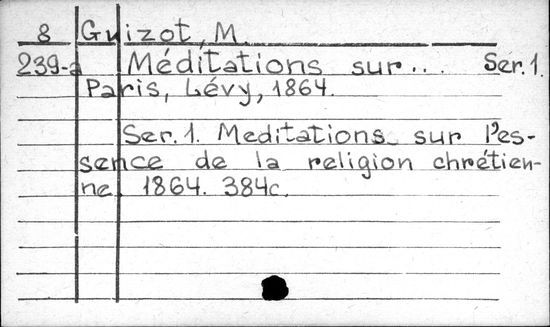 8 Guizot, M.
239-a Méditations sur... Ser. 1.
Paris, Lévy, 1864.
Ser. 1. Meditations sur l'es-
sence de la religion chrétien-
ne. 1864. 384c.